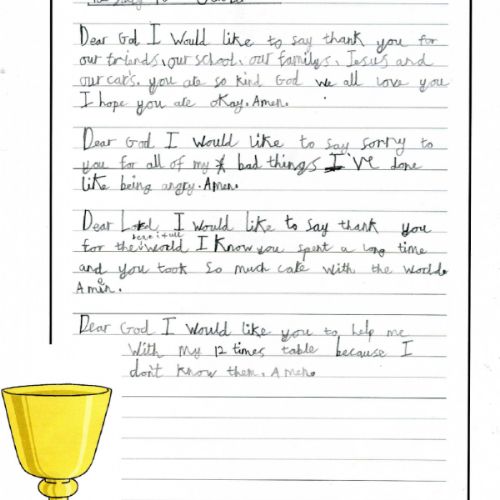 Dear God I would like to say thank you for
our friends, our school, our familys, Jesus and
our cat's. you are so kind God we all love you
I hope you are okay. Amen.
Dear God I would like to say sorry to
you for all of my bad things I've done
like being angry. Amen.
Dear Lord I would like to say thank you
beautiful
for the world I know you spent a long time
and you took so much care with the world.
Amen.
Dear God I would like you to help me
With my 12 times table because I
don't know them. Amen.